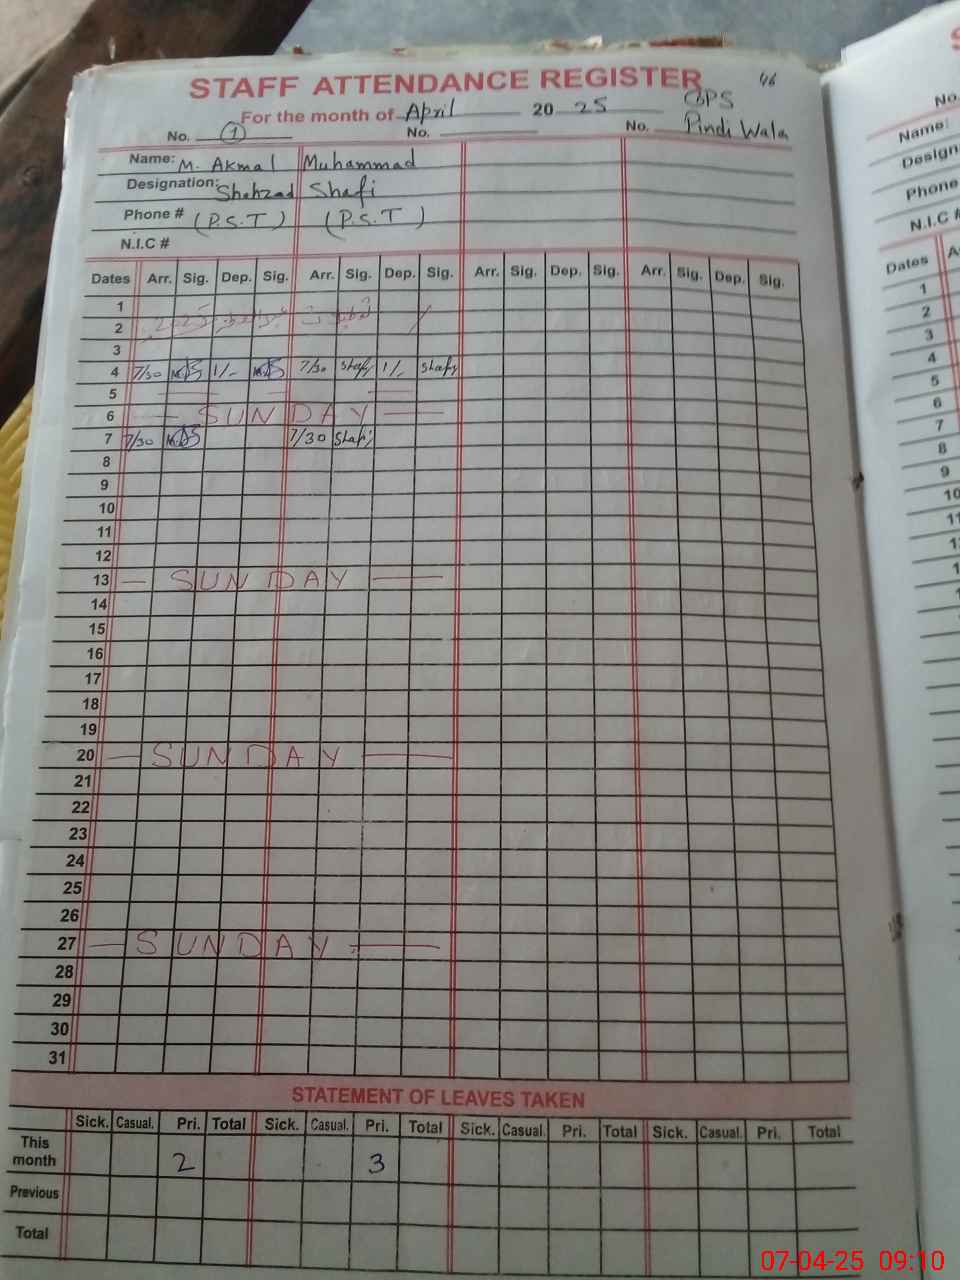 STAFF ATTENDANCE REGISTER 46
For the month of April 20 25 GPS
No. 1 No. No. Pindi Wala
Name: M. Akmal Muhammad
Designation: Shahzad Shafi
Phone # (P.S.T) (P.S.T)
N.I.C #
Dates Arr. Sig. Dep. Sig. Arr. Sig. Dep. Sig. Arr. Sig. Dep. Sig. Arr. Sig. Dep. Sig.
1
2 2025 عیدالفطر تعطیلات
3
4 7/30 1/- 7/30 Shafi 1/- Shafi
5
6 — SUNDAY —
7 7/30 7/30 Shafi
8
9
10
11
12
13 — SUNDAY —
14
15
16
17
18
19
20 — SUNDAY —
21
22
23
24
25
26
27 — SUNDAY —
28
29
30
31
STATEMENT OF LEAVES TAKEN
Sick. Casual. Pri. Total Sick. Casual. Pri. Total Sick. Casual. Pri. Total Sick. Casual. Pri. Total
This month 2 3
Previous
Total
No.
Name:
Design
Phone
N.I.C #
Dates
1
2
3
4
5
6
7
8
9
10
11
07-04-25 09:10